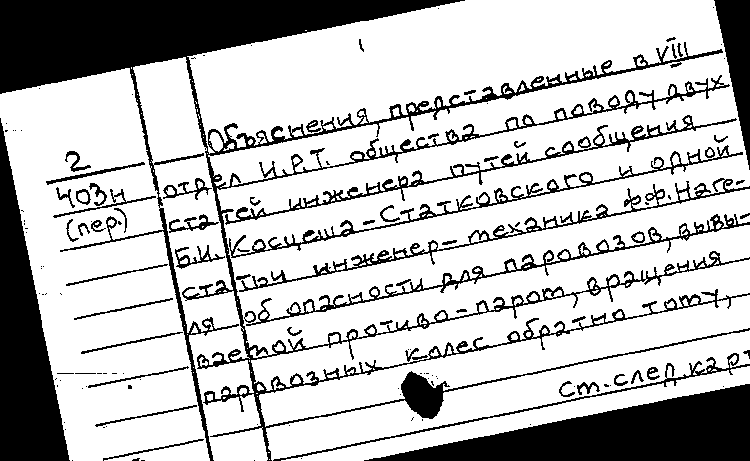 Объяснения, представленные в VIII
2
403н
(пер.)
отдел И.Р.Т. общества по поводу двух
статей инженера путей сообщения
Б.И. Косцеша-Статковского и одной
статьи инженер-механика фф. Наге-
ля об опасности для паровозов, вывы-
ваемой противо-паром, вращения
паровозных колес обратно тому,
См. след. карт